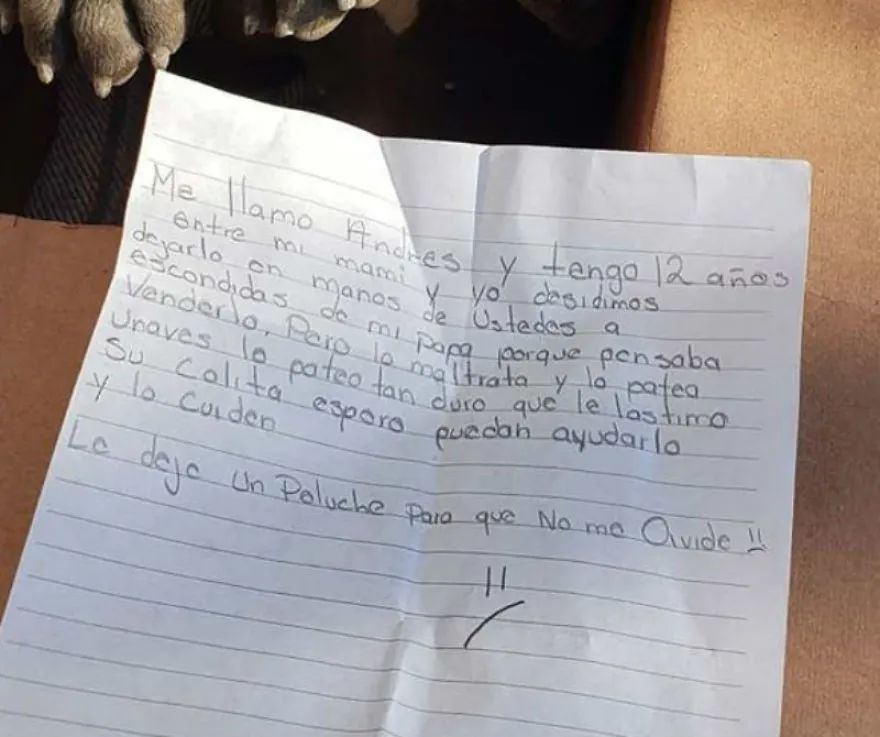 Me llamo Andres y tengo 12 años
entre mi mami y yo desidimos
dejarlo en manos de Ustedes a
escondidas de mi papa porque pensaba
Venderlo. Pero lo maltrata y lo patea
Unaves lo pateo tan duro que le lastimo
su colita espero puedan ayudarlo
y lo cuiden
Le deje un Peluche Para que No me Olvide !!